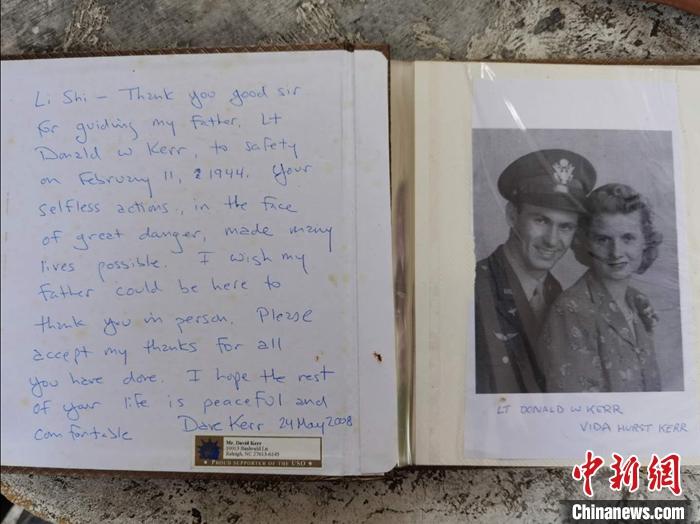 Li Shi — Thank you good sir
for guiding my father, Lt
Donald W Kerr, to safety
on February 11, 1944. Your
selfless actions, in the face
of great danger, made many
lives possible. I wish my
father could be here to
thank you in person. Please
accept my thanks for all
you have done. I hope the rest
of your life is peaceful and
comfortable Dave Kerr 24 May 2008
Mr. David Kerr
Raleigh, NC 27613-6145
PROUD SUPPORTER OF THE USO
LT DONALD W KERR
VIDA HURST KERR
中新网
Chinanews.com